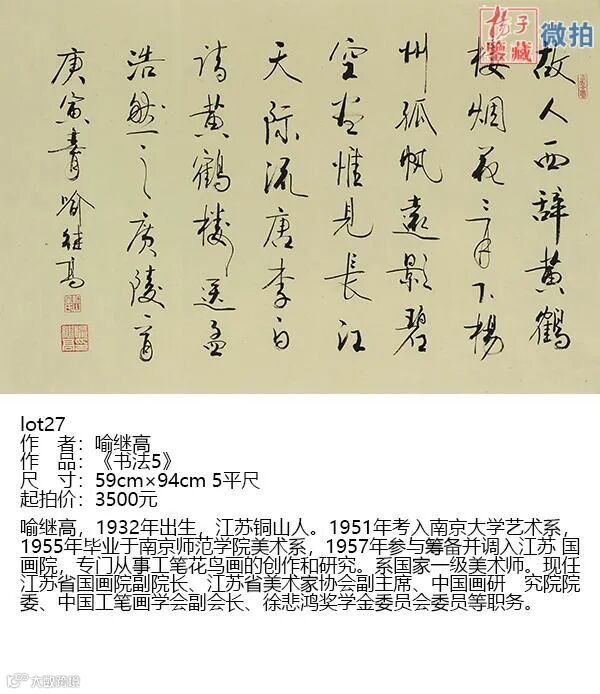 故人西辞黄鹤
楼烟花三月下杨
州孤帆远影碧
空尽惟见长江
天际流唐李白
诗黄鹤楼送孟
浩然之广陵
庚寅春喻继高
杨子
鉴藏
微拍
lot27
作 者：喻继高
作 品：《书法5》
尺 寸：59cm×94cm 5平尺
起拍价：3500元
喻继高，1932年出生，江苏铜山人。1951年考入南京大学艺术系，
1955年毕业于南京师范学院美术系，1957年参与筹备并调入江苏 国
画院，专门从事工笔花鸟画的创作和研究。系国家一级美术师。现任
江苏省国画院副院长、江苏省美术家协会副主席、中国画研 究院院
委、中国工笔画学会副会长、徐悲鸿奖学金委员会委员等职务。
大数跨境